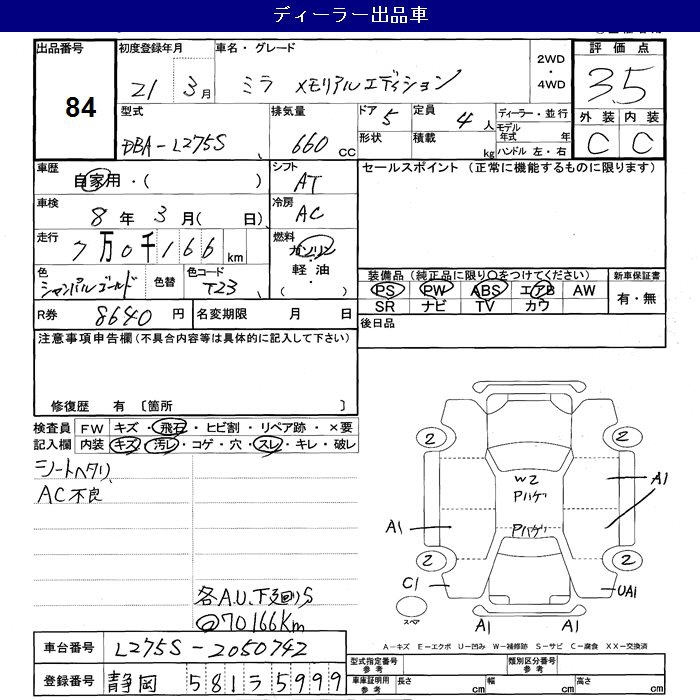 ディーラー出品車
出品番号 84
初度登録年月 21 3月
車名・グレード ミラ メモリアルエディション
2WD・4WD
評価点 3.5
型式 DBA-L275S
排気量 660 CC
ドア 5
形状
定員 4 人
積載 kg
ディーラー・並行
モデル年式 年
ハンドル 左・右
外装 内装
C C
車歴 自家用・( )
シフト AT
セールスポイント (正常に機能するものに限ります)
車検 8年 3月( 日)
冷房 AC
走行 7万0千166km
燃料 ガソリン・軽油・( )
色 シャンパンゴールド 色替 色コード T23
装備品(純正品に限り○をつけてください) 新車保証書
PS PW ABS エアB AW 有・無
SR ナビ TV カワ
R券 8640 円 名変期限 月 日
後日品
注意事項申告欄(不具合内容等は具体的に記入して下さい)
修復歴 有 〔箇所 〕
検査員 FW キズ・飛石・ヒビ割・リペア跡・×要
記入欄 内装 キズ・汚レ・コゲ・穴・スレ・キレ・破レ
シートヘタリ、
AC不良
各A.U、下廻りS
@70166Km
2 2
W2
Pハゲ
A1
A1 Pハゲ
2 2
C1 UA1
スペア
A1 A1
A-キズ E-エクボ U-凹み W-補修跡 S-サビ C-腐食 XX-交換済
車台番号 L275S-2050742
登録番号 静岡 581 ラ 5999
型式指定番号 参考 類別区分番号 参考
車庫証明用 参考 長さ cm 幅 cm 高さ cm